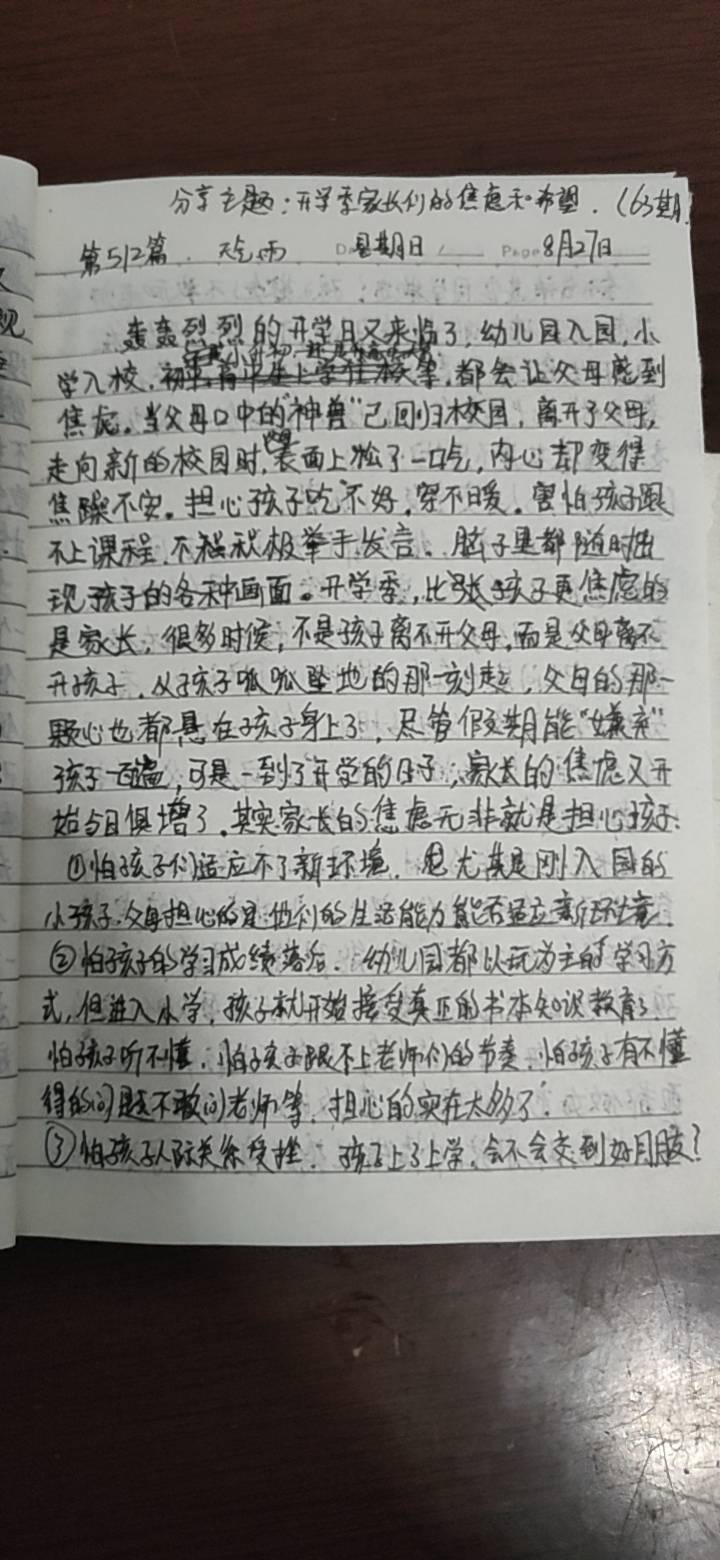 分享主题：开学季家长们的焦虑和希望．（63期
第512篇． 天气雨 星期日 Page 8月27日
轰轰烈烈的开学日又来临了，幼儿园入园，小
学入校，都会让父母感到
焦虑。当父母口中的"神兽"已回归校园，离开了父母，
走向新的校园时，表面上松了一口气，内心却变得
焦躁不安。担心孩子吃不好，穿不暖。害怕孩子跟
不上课程，不积极举手发言、脑子里都随时出
现孩子的各种画面。开学季，比孩子更焦虑的
是家长，很多时候，不是孩子离不开父母，而是父母离不
开孩子．从孩子呱呱坠地的那一刻起，父母的那一
颗心也都悬在孩子身上了，尽管假期能"嫌弃"
孩子一百遍，可是一到了开学的日子；家长的焦虑又开
始与日俱增了．其实家长的焦虑无非就是担心孩子：
①怕孩子们适应不了新环境．尤其是刚入园的
小孩子．父母担心的是他们的生活能力能否适应新环境．
②怕孩子的学习成绩落后．幼儿园都以玩为主的学习方
式，但进入小学，孩子就开始接受真正的书本知识教育了．
怕孩子听不懂，怕孩子跟不上老师们的节奏．怕孩子有不懂
得的问题不敢问老师等，担心的实在太多了．
③怕孩子人际关系受挫．孩子上了上学，会不会交到好朋友？